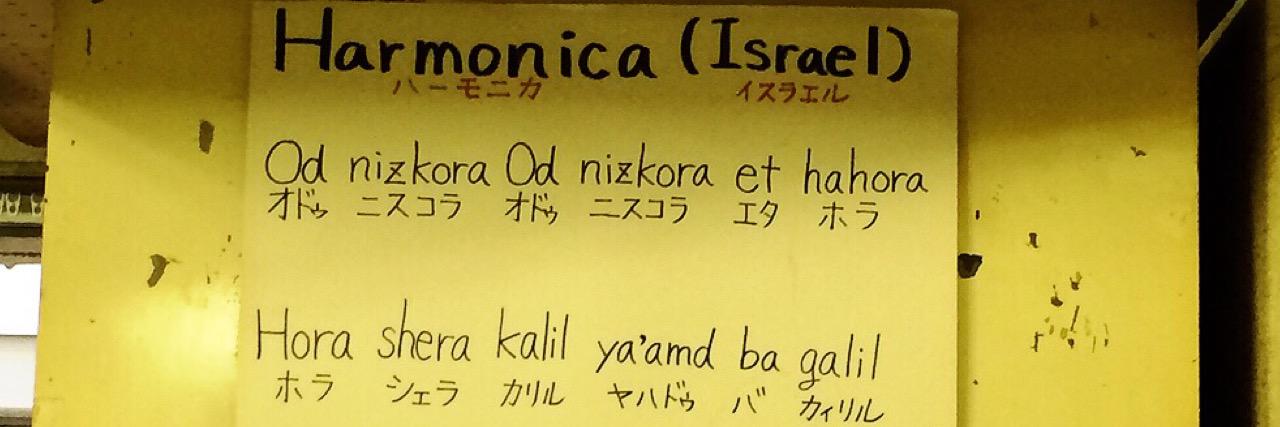 Harmonica (Israel)
ハーモニカ イスラエル
Od nizkora Od nizkora et hahora
オドゥ ニスコラ オドゥ ニスコラ エタ ホラ
Hora shera kalil ya'amd ba galil
ホラ シェラ カリル ヤハドゥ バ カィリル